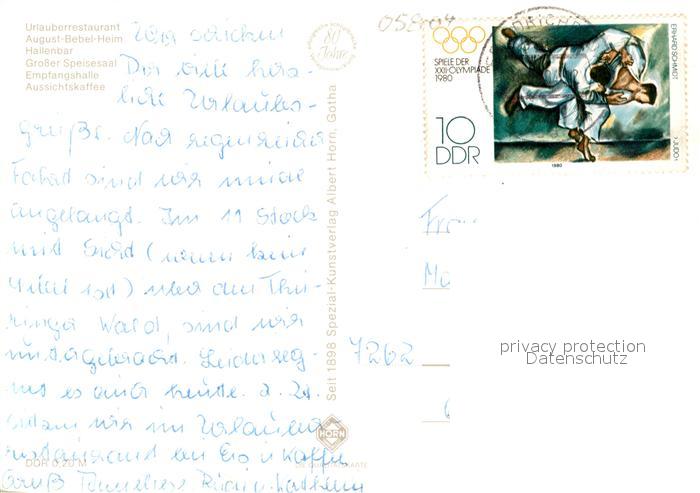 Urlauberrestaurant
August-Bebel-Heim
Hallenbar
Großer Speisesaal
Empfangshalle
Aussichtskaffee
Wir schicken
Dir viele herz-
liche Urlaubs-
grüße. Nach regnerischer
Fahrt sind wir
angelangt. Im 11 Stock
mit Sicht (wenn kein
Nebel ist) über den Thü-
ringer Wald, sind wir
untergebracht. Leider reg-
net es auch heute. z. Zt.
sitzen wir im Urlauber-
restaurant bei Eis u Kaffee
Gruß Anneliese
DDR 0,20 M
80 Jahre
Seit 1898 Spezial-Kunstverlag Albert Horn, Gotha
HORN
DIE QUALITÄTSKARTE
SPIELE DER
XXII. OLYMPIADE
1980
10
DDR
ERHARD SCHMIDT
»JUDO«
1980
7262
privacy protection
Datenschutz